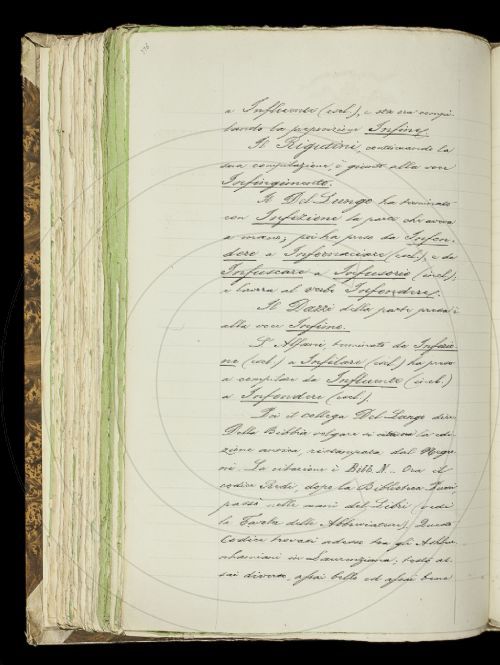 a Influente (escl.), e sta ora compi-
lando la preposizione Infine.
Il Rigutini, continuando la
sua compilazione, è giunto alla voce
Infingimento.
Il Del Lungo ha terminato
con Infezione la parte che aveva
a mano; poi ha preso da Infon-
dere a Infornaciare (escl.), e da
Infuscare a Infusorio (incl.),
e lavora al verbo Infondere.
Il Dazzi della parte presa è
alla voce Infimo.
L'Alfani, terminato da Infezio-
ne (escl.) a Infilare (escl.) ha preso
a compilare da Influente (incl.)
a Infondere (escl.).
Poi il collega Del Lungo dice:
Della Bibbia volgare si citava la edi-
zione antica, ristampata dal Negro-
ni. La citazione è Bibb. N. Ora il
codice Redi, dopo la Biblioteca
passò nelle mani del Libri (vedi
la Tavola delle Abbreviature). Questo
Codice trovasi adesso tra gli Ashbur-
nhamiani in Laurenziana: testo as-
sai diverso, assai bello ed assai bene